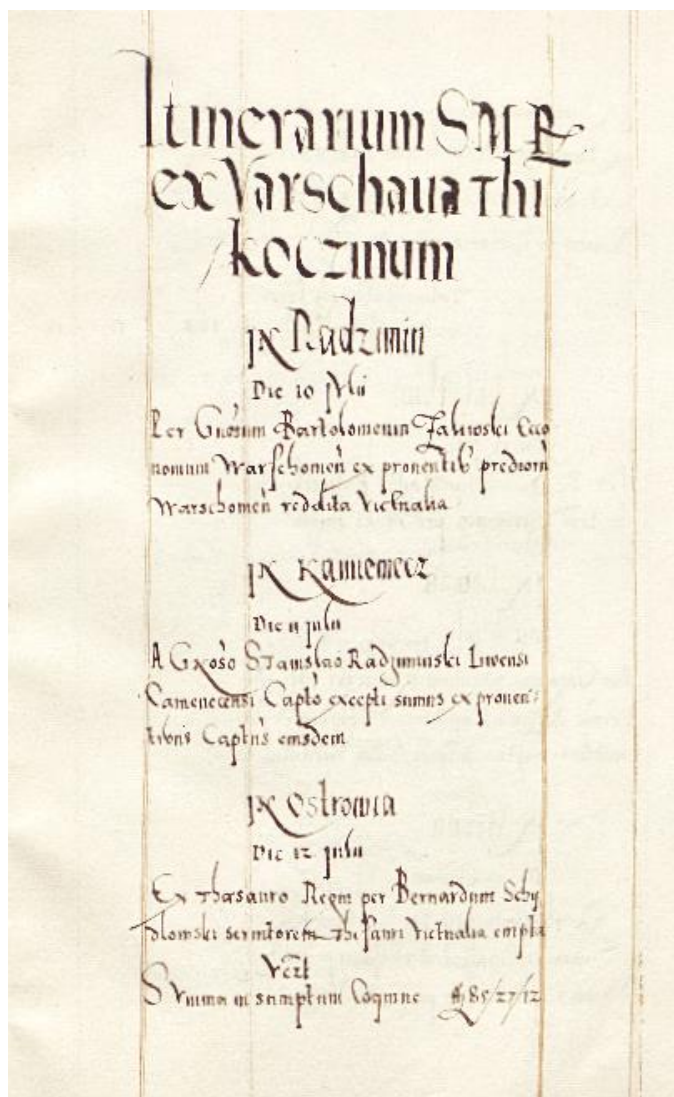 Itinerarium S M R
ex Varschaua Thi
koczinum
In Radzimin
Die 10 Julii
Per Gnosum Bartolomeum Zaliwski Eco
nomum Warschomen ex prouentib prediorū
Warschomen reddita victualia
In Kamieniecz
Die 11 Julii
A Groso Stanislao Radziminski Liwensi
Camenecensi Capto excepti sumus ex prouen
tibus Captus eiusdem
In Ostrowia
Die 12 Julii
Ex Thesauro Regni per Bernardum Schy
dlowski seruitorem Thesauri victualia empta
Summa in sumptum Coquine 85/27/12